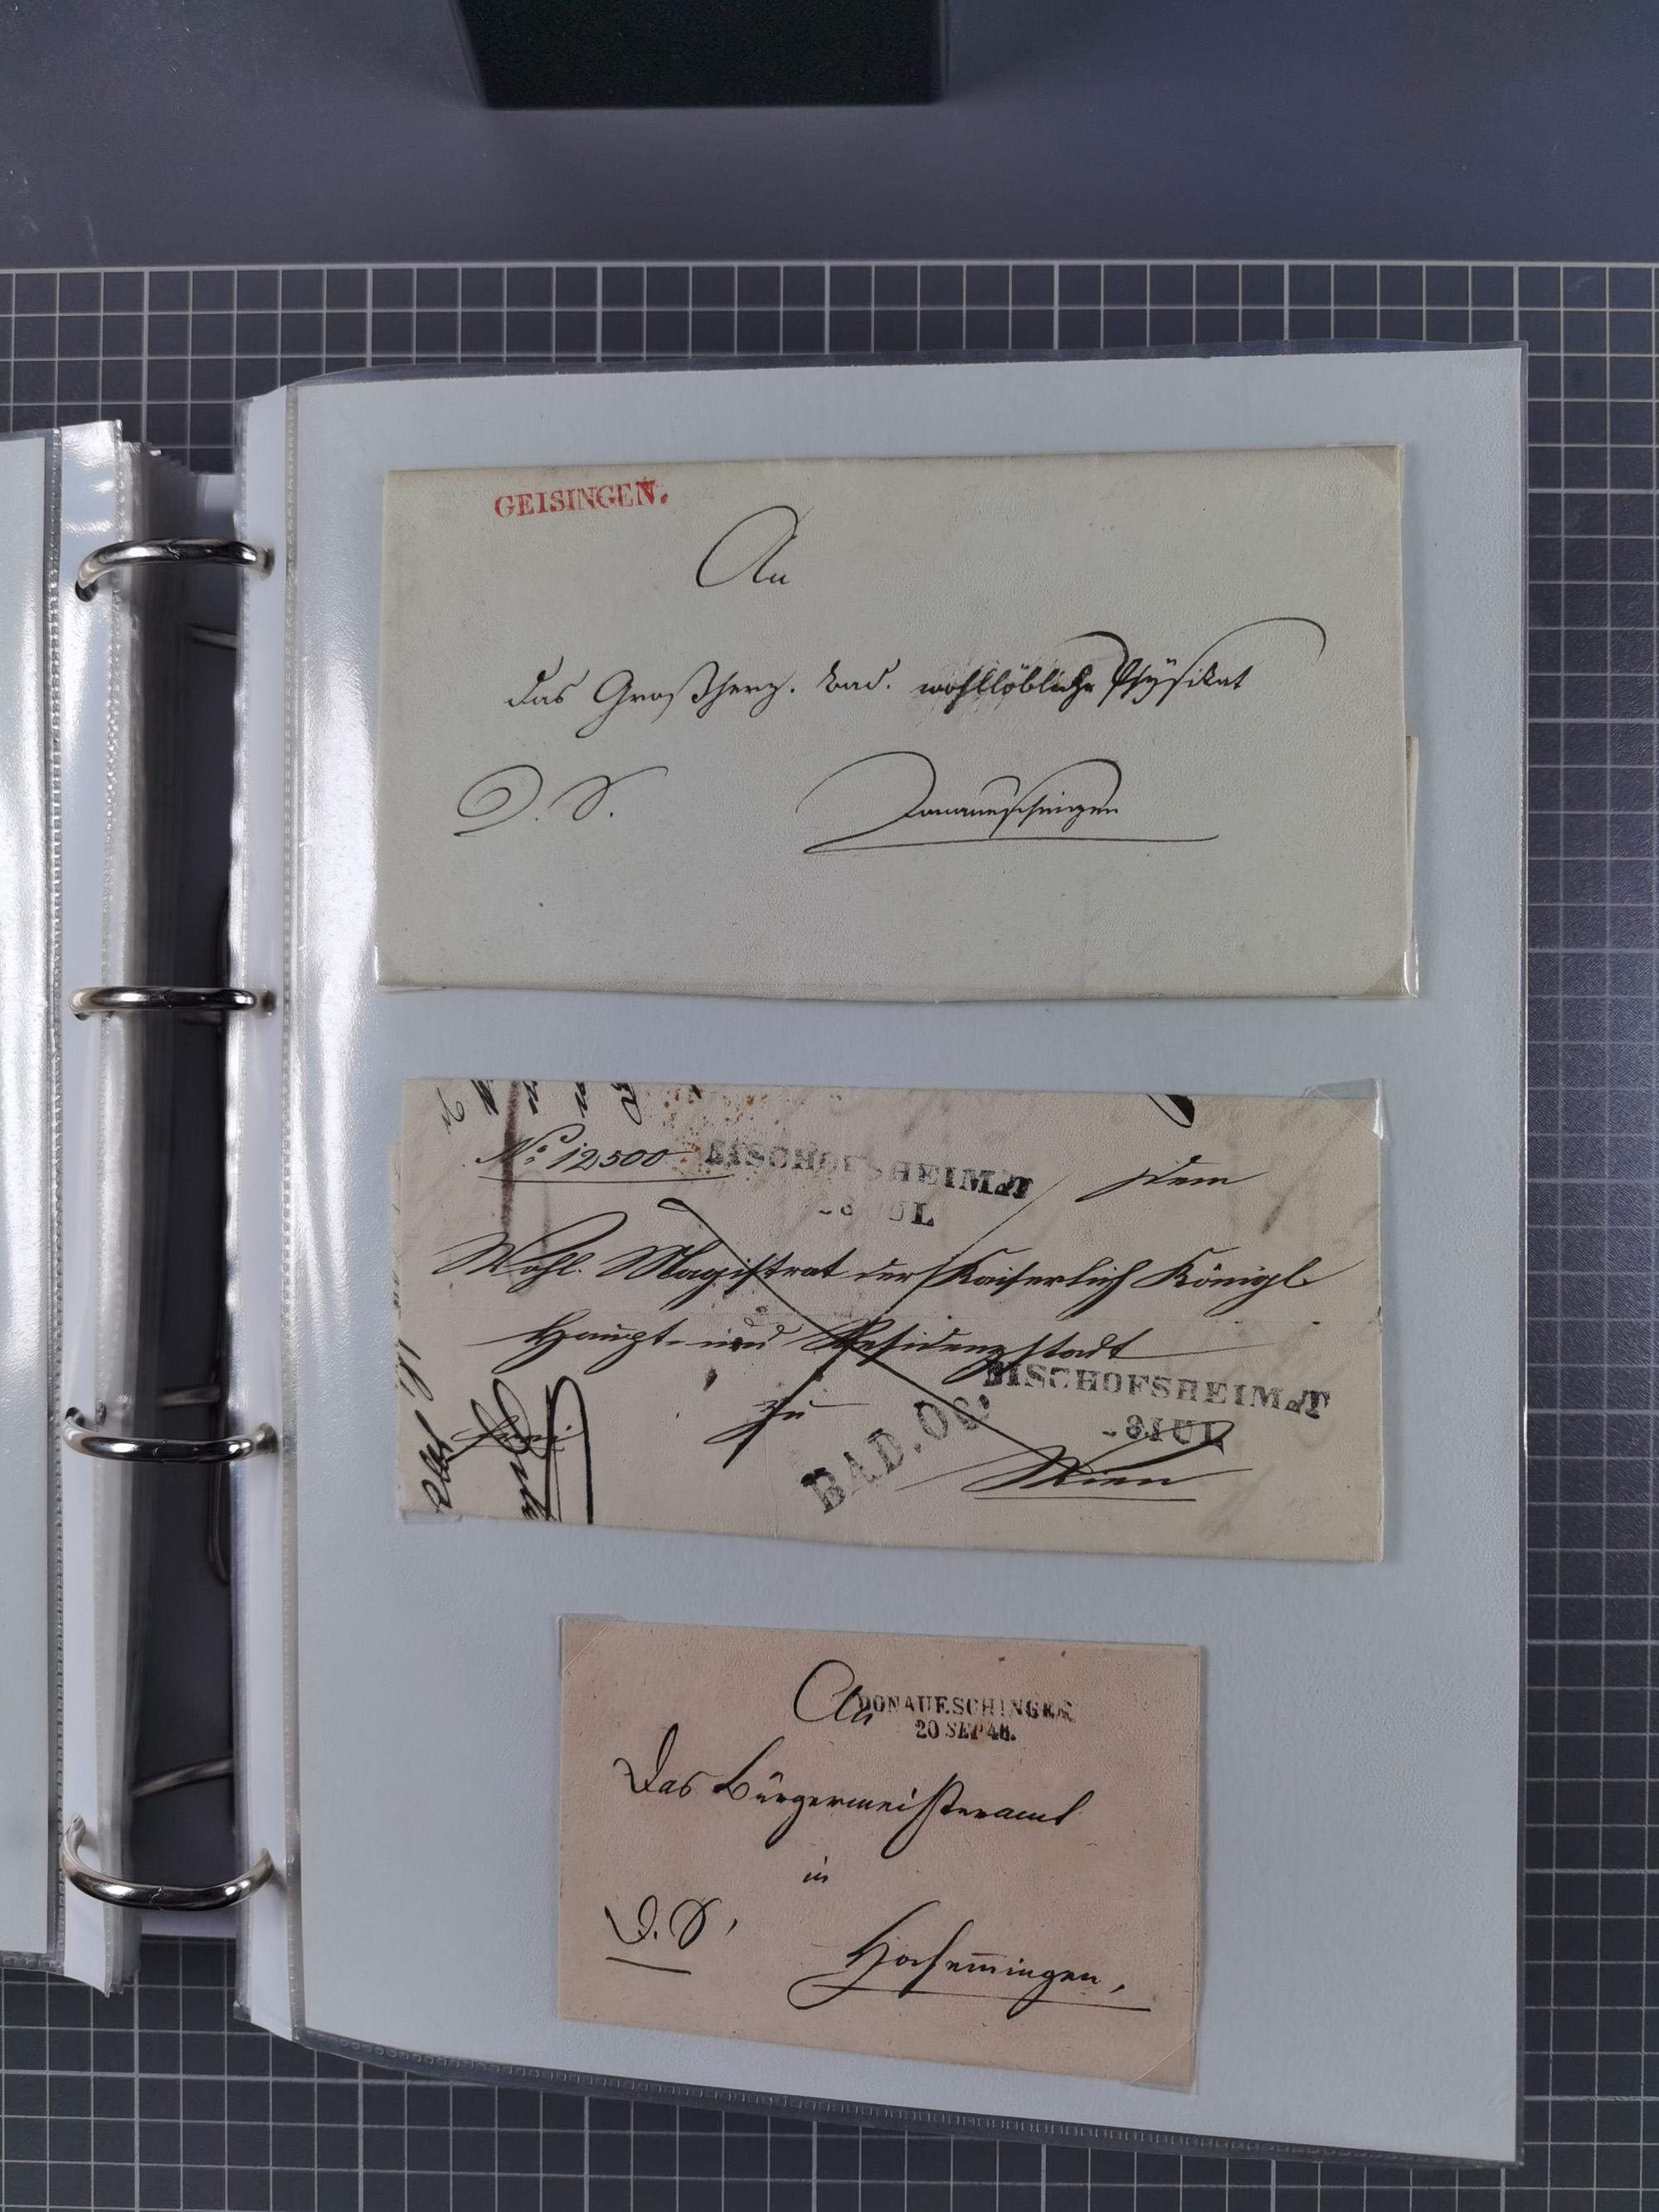 GEISINGEN.
An
das Großherz. bad. wohllöbliche Physikat
D. S.
Donaueschingen
No: 12,500
BISCHOFSHEIM a/T
- 8 JUL
Dem
Wohl. Magistrat der Kaiserlich Königl.
Haupt- und Residenzstadt
zu
BISCHOFSHEIM a/T
- 8 JUL
BAD. O.C.
Wien
An
DONAUESCHINGEN
20 SEP 48.
Das Bürgermeisteramt
in
D. S.
Hochemmingen.